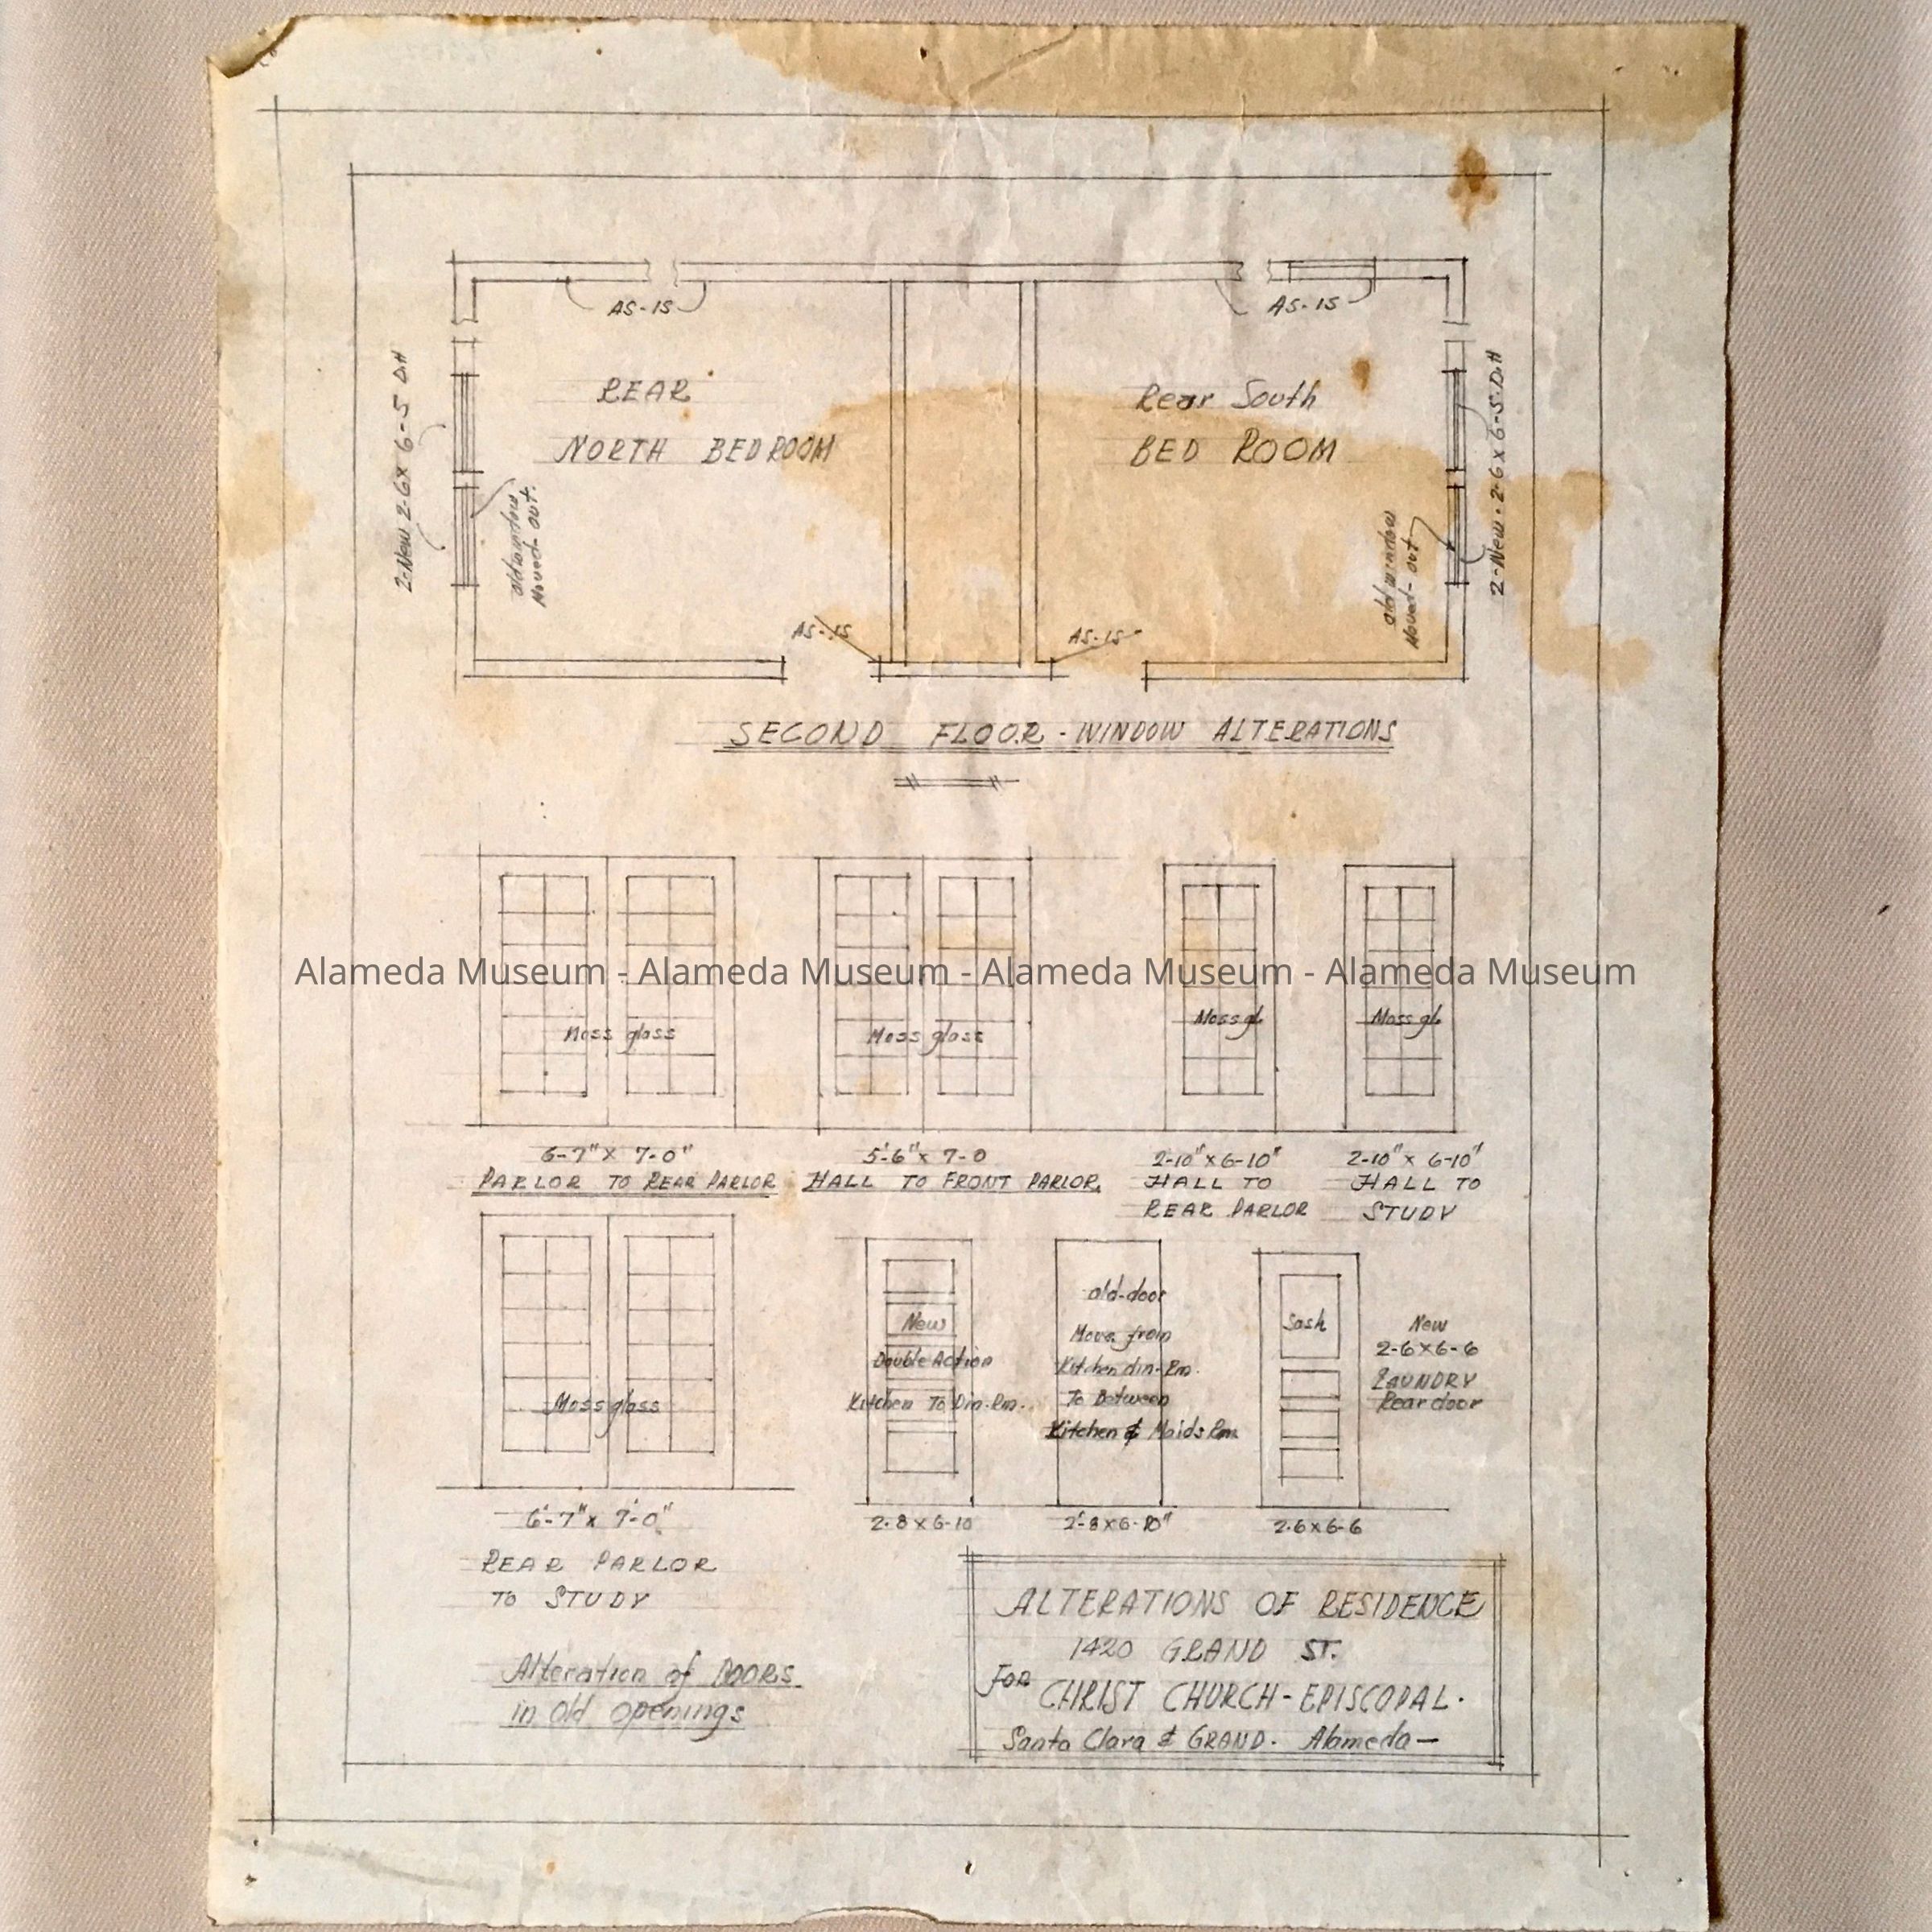 AS-IS
AS-IS
REAR
NORTH BEDROOM
Rear South
BED ROOM
2-New 2-6x 6-5 D.H
old window
Moved-out.
old window
Moved-out
2-New. 2-6 x 6-5.D.H
AS-IS
AS-IS
SECOND FLOOR-WINDOW ALTERATIONS
Alameda Museum - Alameda Museum - Alameda Museum - Alameda Museum
Moss glass
Moss glass
Moss gl
Moss gl
6-7"x 7-0"
PARLOR TO REAR PARLOR
5'-6"x 7-0
HALL TO FRONT PARLOR.
2-10"x6-10"
HALL TO
REAR PARLOR
2-10"x 6-10"
HALL TO
STUDY
Moss glass
6'-7"x 7'-0"
REAR PARLOR
TO STUDY
New
Double Action
Kitchen To Din-Rm.
2-8x6-10
old-door
Move from
Kitchen din-Rm.
To Between
Kitchen & Maids Rm.
2'-8x6-10"
Sash
2-6x6-6
New
2-6x6-6
LAUNDRY
Rear door
Alteration of DOORS
in Old Openings
ALTERATIONS OF RESIDENCE
1420 GRAND ST.
FOR CHRIST CHURCH-EPISCOPAL.
Santa Clara & GRAND. Alameda—